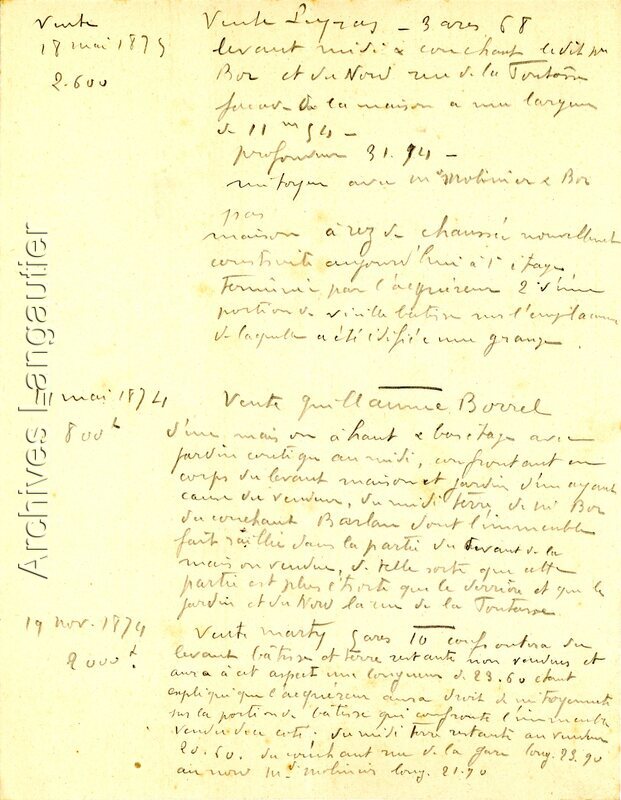 Vente
18 mai 1875
2.600
Vente Peyras – 3 ares 68
levant midi & couchant ledit
Bor et du Nord rue de la Toutosse
façade de la maison a une largeur
de 11 m 54 –
profondeur 31.94 –
mitoyen avec Mr Molinier & Bor
pas
maison à rez de chaussée nouvellement
construite aujourd'hui à 1 étage
terminée par l'acquéreur 2° d'une
portion de vieille bâtisse sur l'emplacement
de laquelle a été édifiée une grange.
mai 1874
800 f
Vente Guillaume Borrel
d'une maison à haut & bas étage avec
jardin contigu au midi, confrontant en
corps du levant maison et jardin d'un ayant
cause du vendeur, du midi terre de Mr Bor
du couchant Barlan dont l'immeuble
fait saillie dans la partie du devant de la
maison vendue, de telle sorte que cette
partie est plus étroite que le derrière et que le
jardin et du Nord la rue de la Toutosse
19 nov. 1874
2000 f.
Vente Marty 5 ares 10 confrontera du
levant bâtisse et terre restante non vendues et
aura à cet aspect une longueur de 23.60 étant
expliqué que l'acquéreur aura droit de mitoyenneté
sur la portion de bâtisse qui confronte l'immeuble
vendu de ce côté. du midi terre restante au vendeur
20.60. du couchant rue de la gare long. 23.90
au nord Mr Molinier long. 21.70
Archives Langautier